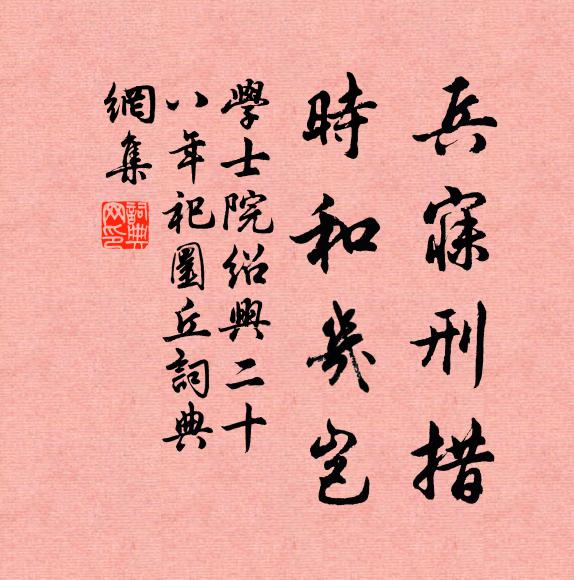 兵寢刑措
時和歲豐
學士院紹興二十
八年祀圜丘詞典
網集
詞典網印